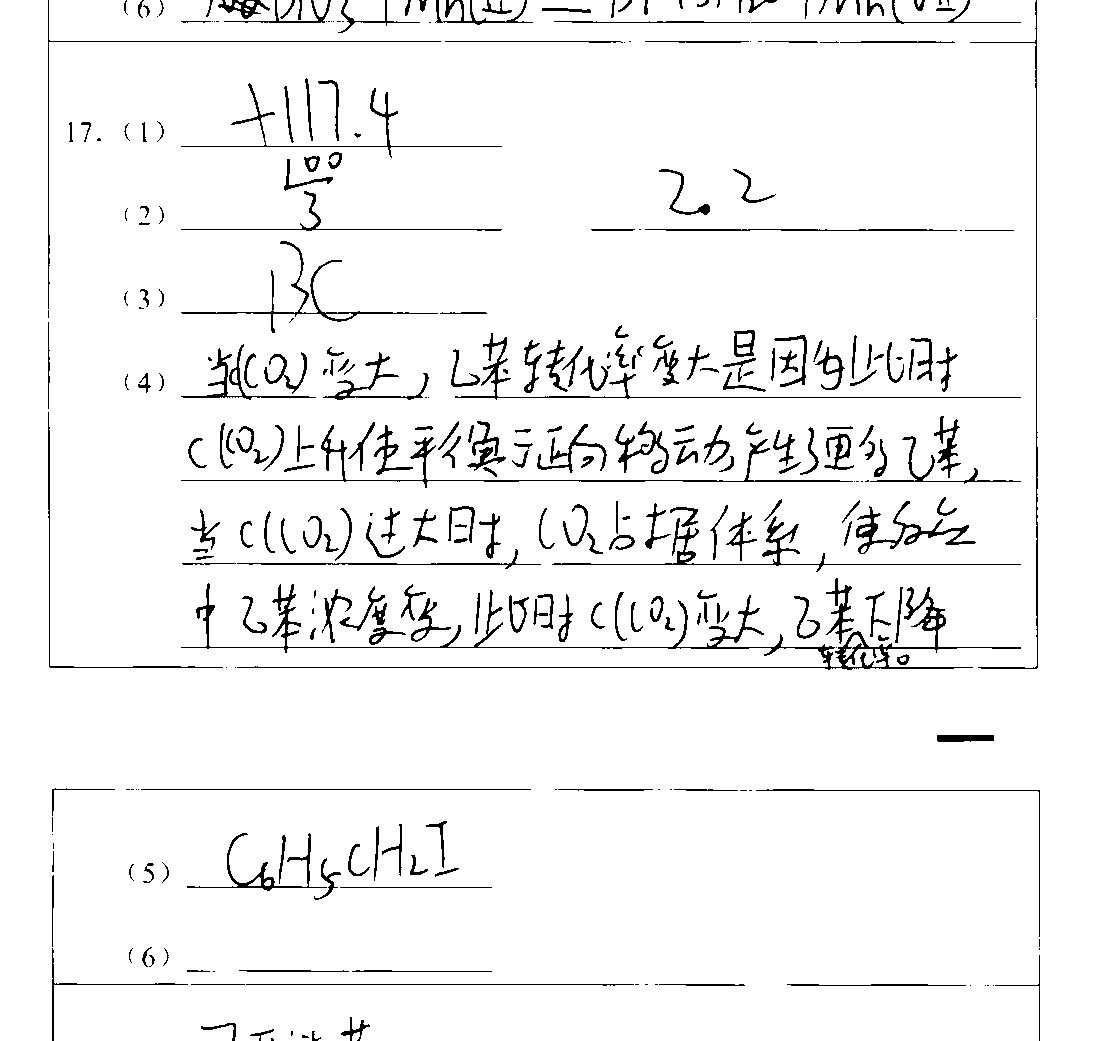 (6)
17. (1) +117.4
(2) 100/3 2.2
(3) BC
(4) 当c(CO₂)变大，乙苯转化率变大是因为此时
c(CO₂)上升使平衡于正向移动产生了更多乙苯，
当c(CO₂)过大时，CO₂占据体系，使
中乙苯浓度变，此时c(CO₂)变大，乙苯下降
转化率。
(5) C₆H₅CH₂I
(6)